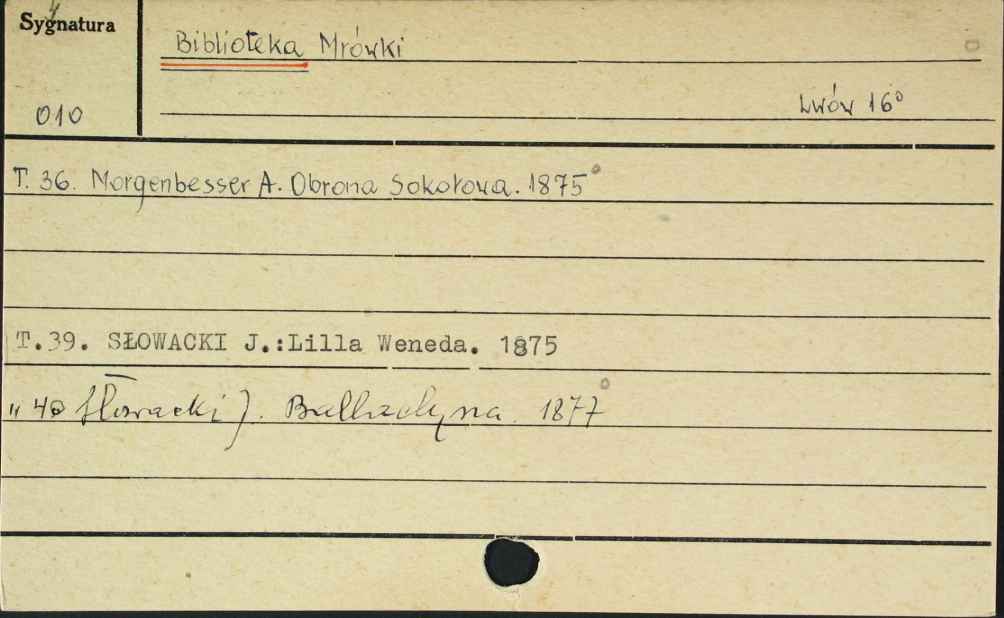 Sygnatura
Biblioteka Mrówki
010
Lwów 16°
T. 36. Morgenbesser A. Obrona Sokołowa. 1875
T.39. SŁOWACKI J.:Lilla Weneda. 1875
" 40 Słowacki J. Balladyna. 1877